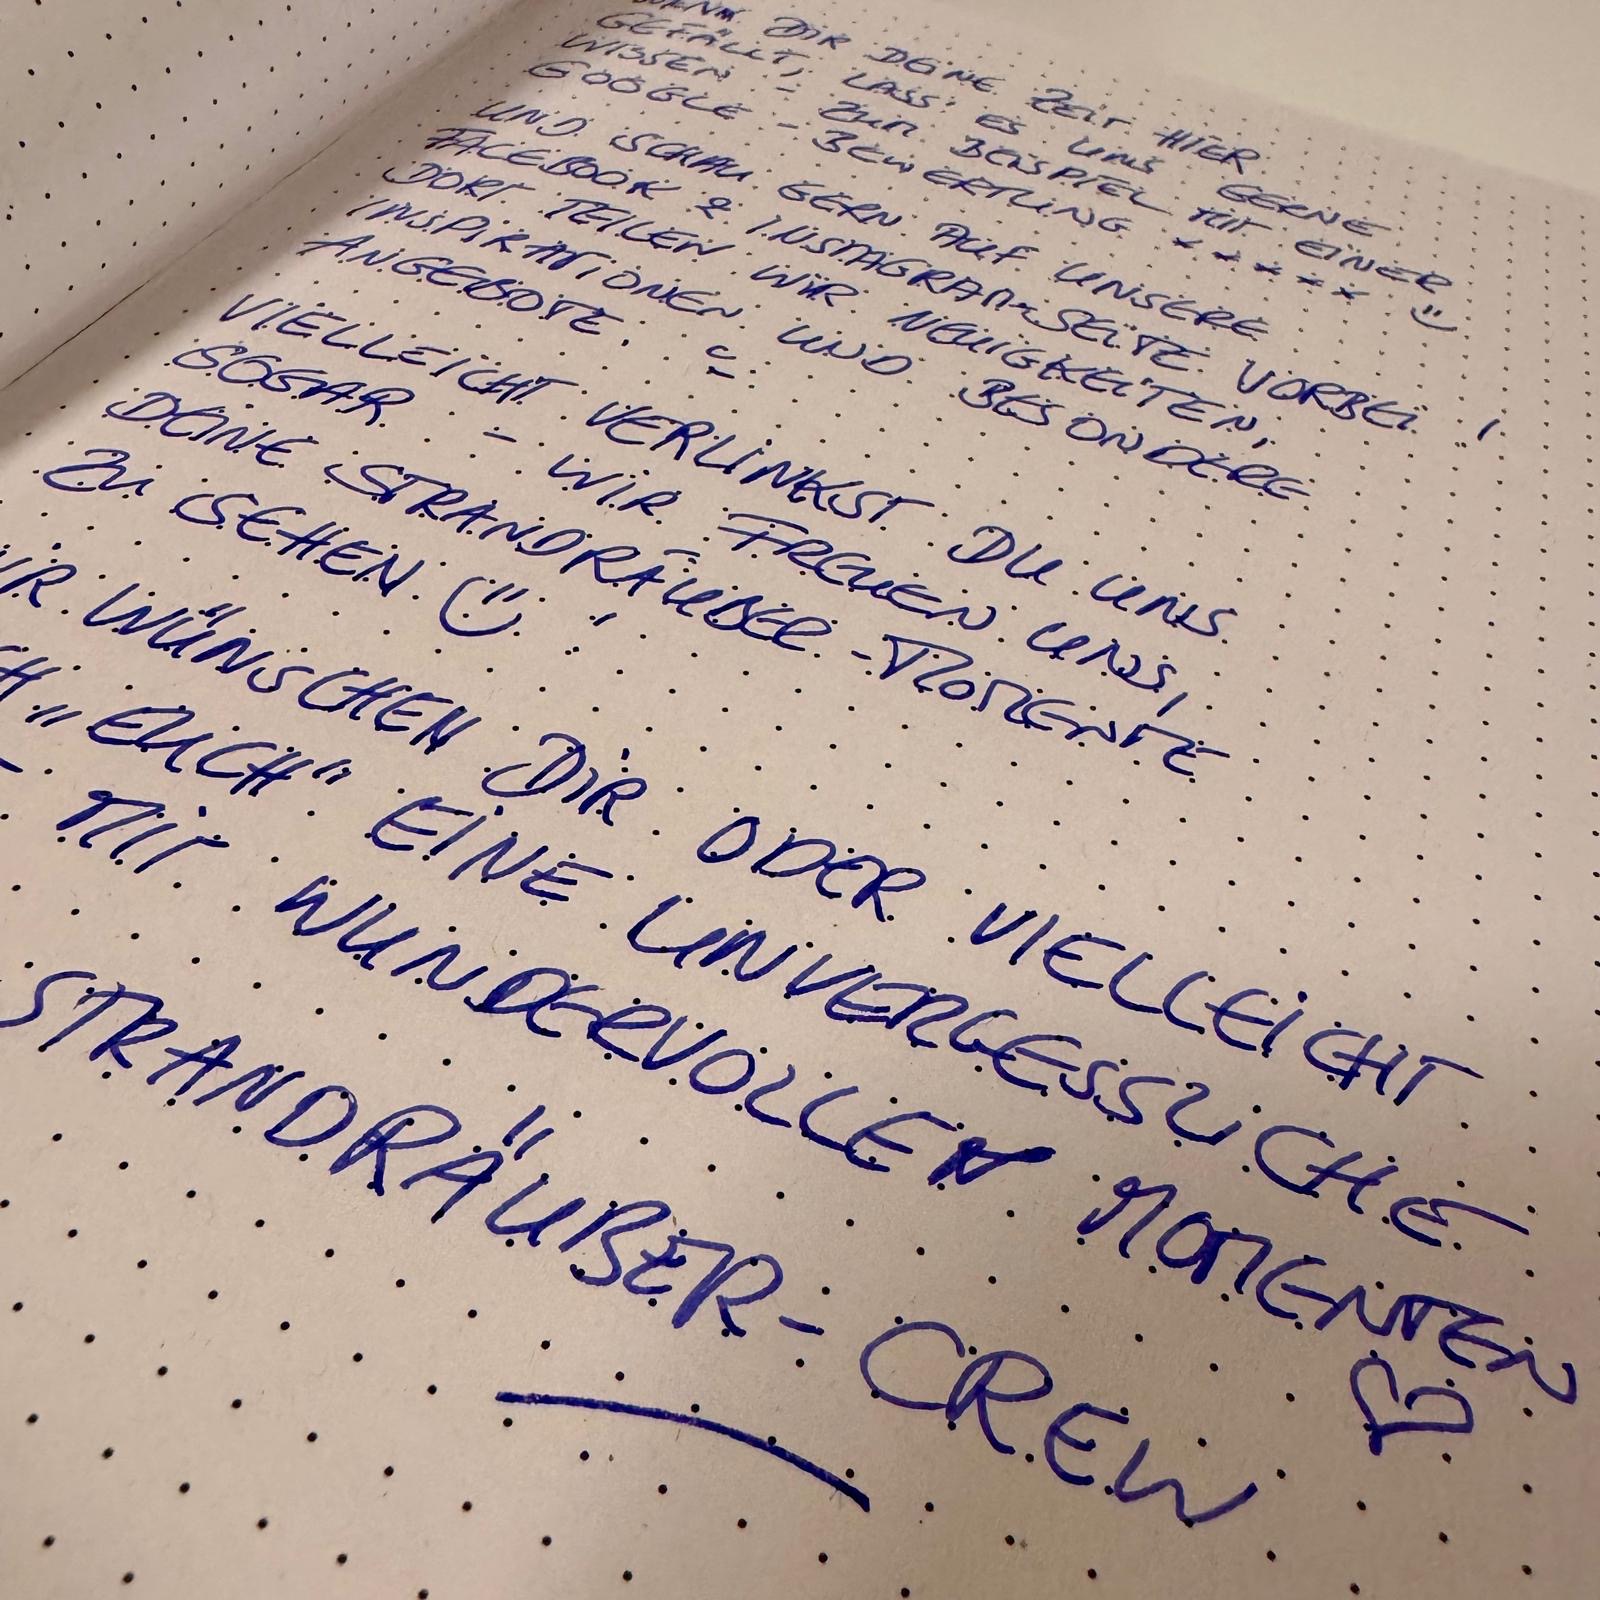 DIR DEINE ZEIT HIER
GEFÄLLT, LASS' ES UNS GERNE
WISSEN - ZUM BEISPIEL MIT EINER
GOOGLE - BEWERTUNG ***** :)
UND SCHAU GERN AUF UNSERE
FACEBOOK & INSTAGRAM-SEITE VORBEI!
DORT TEILEN WIR NEUIGKEITEN,
INSPIRATIONEN UND BESONDERE
ANGEBOTE. :)
VIELLEICHT VERLINKST DU UNS
SOGAR - WIR FREUEN UNS,
DEINE STRANDRÄUBER - MOMENTE
ZU SEHEN :) !
WIR WÜNSCHEN DIR ODER VIELLEICHT
„EUCH" EINE UNVERGESSLICHE
MIT WUNDERVOLLEN MOMENTEN
STRANDRÄUBER - CREW ♡